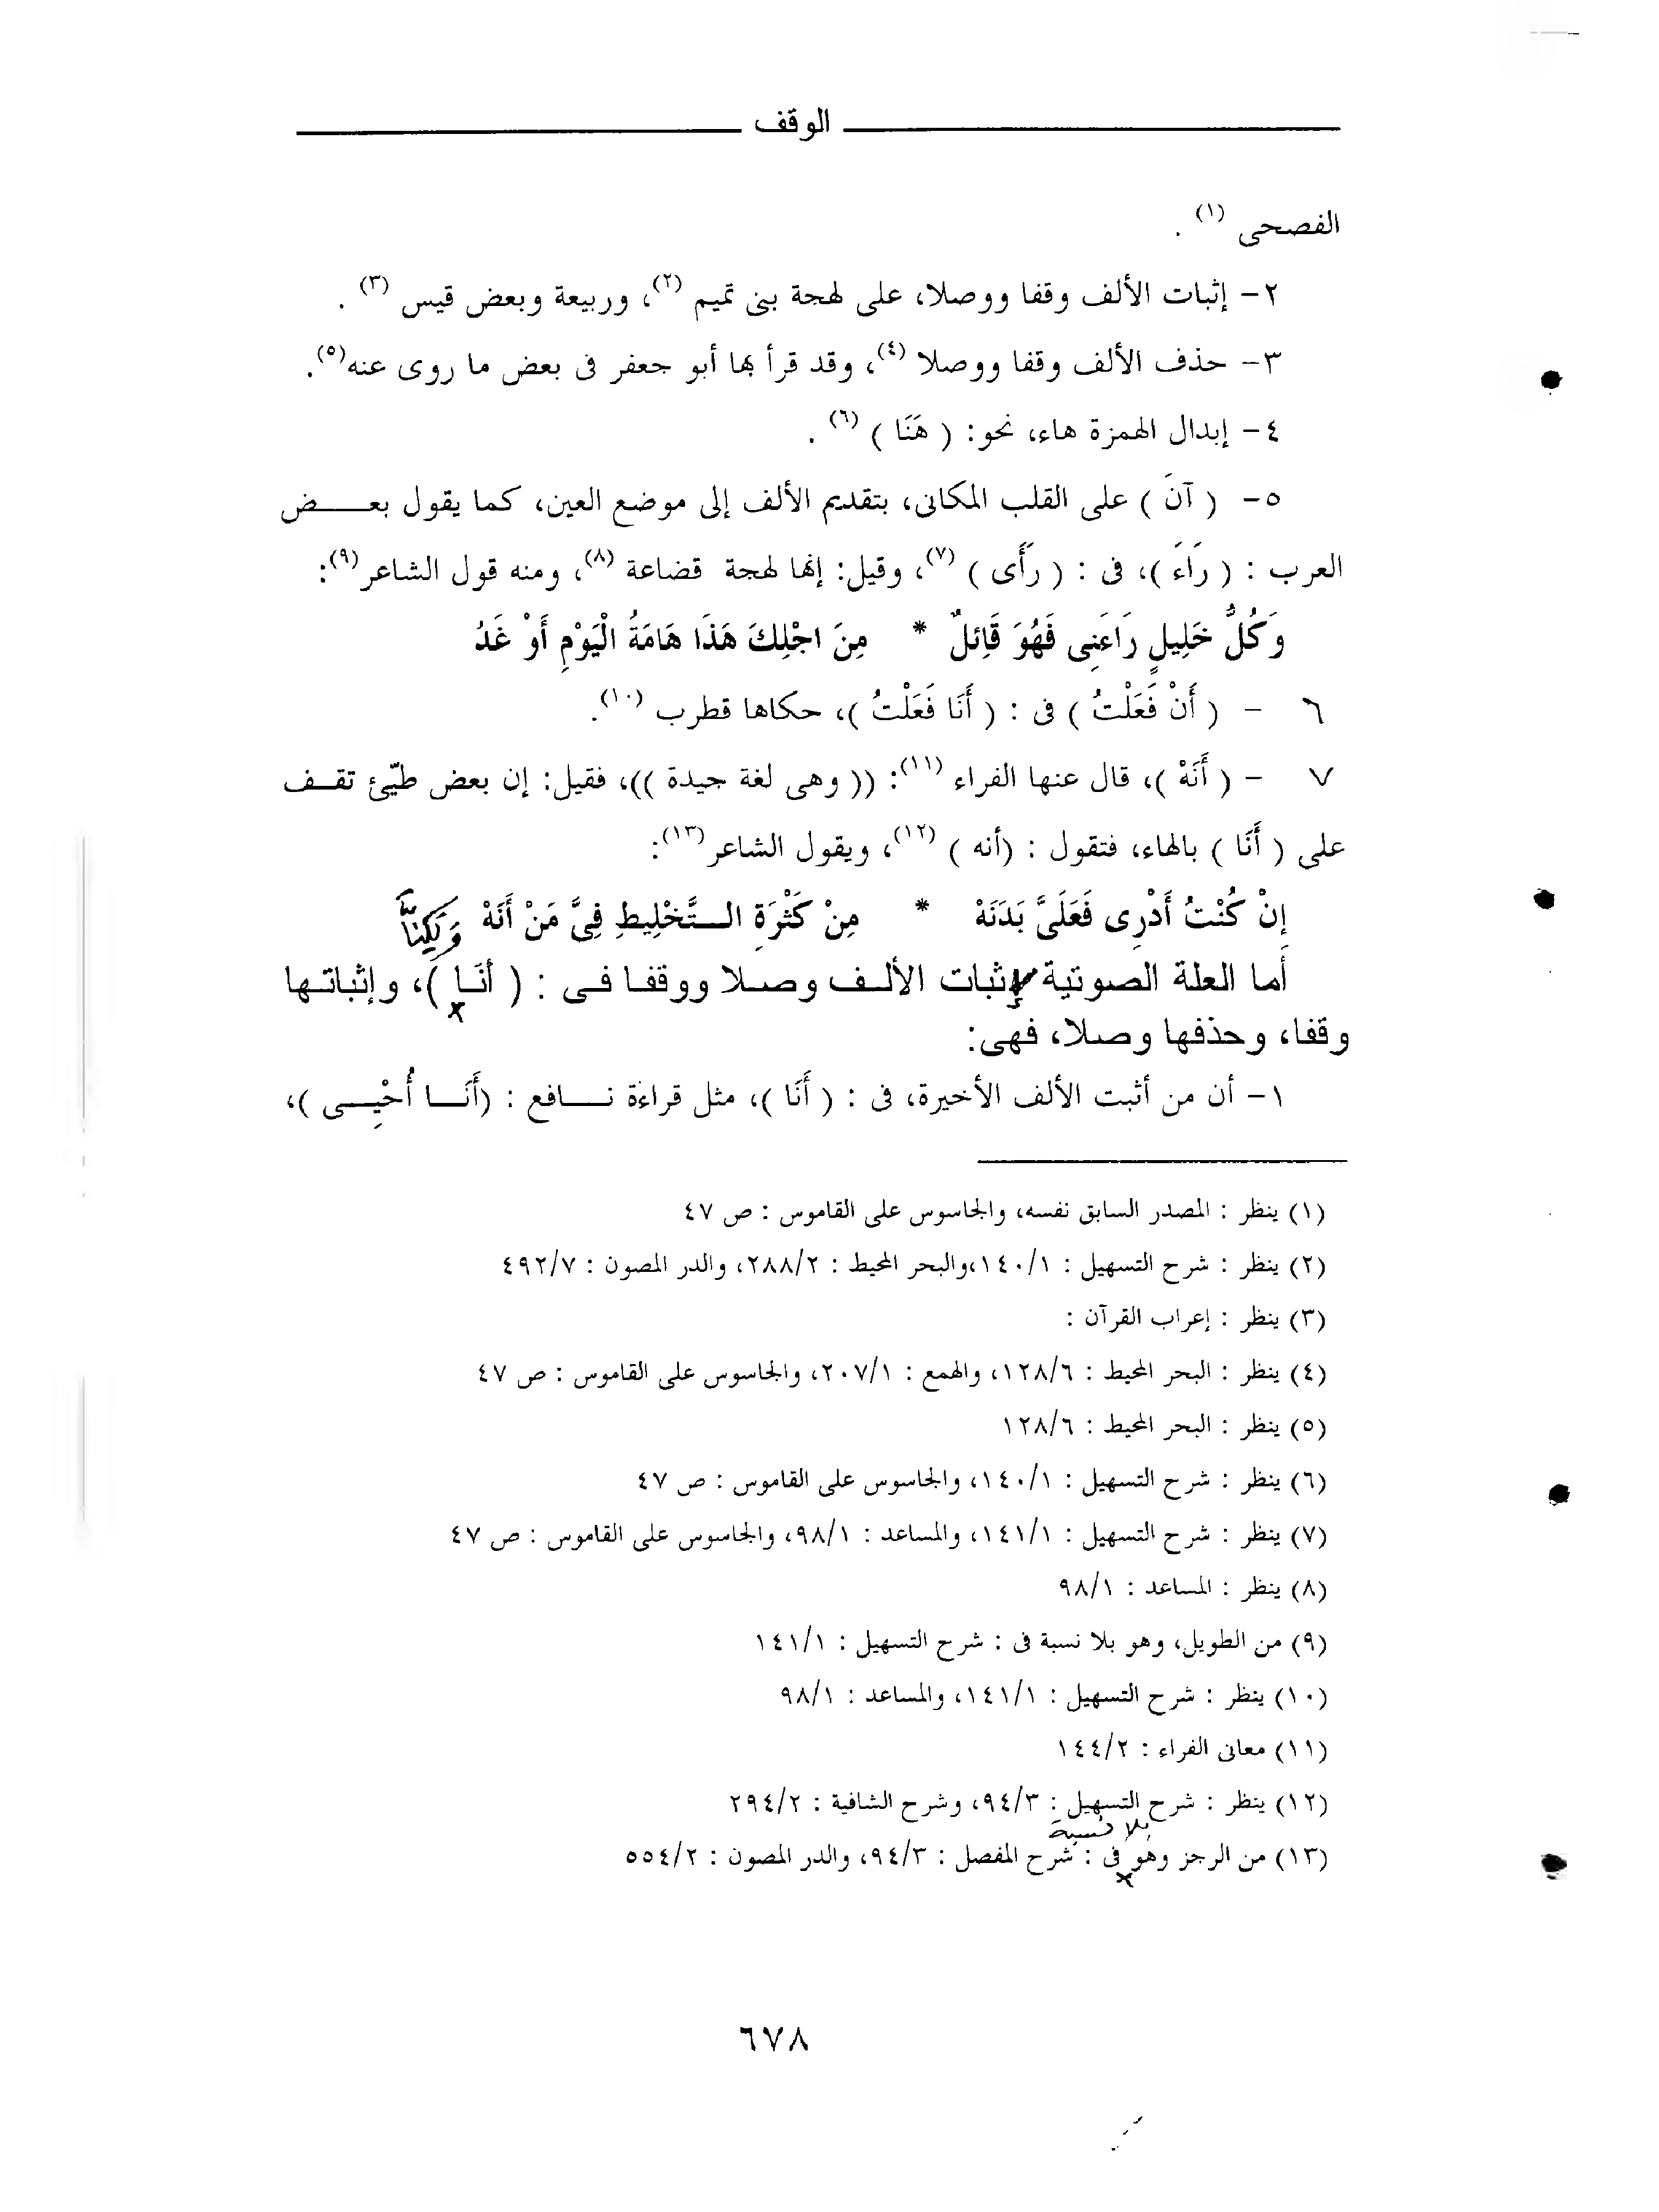 الوقف
الفصحى (١) .
٢- إثبات الألف وقفا ووصلا، على لهجة بنى تميم (٢)، وربيعة وبعض قيس (٣) .
٣- حذف الألف وقفا ووصلا (٤)، وقد قرأ بها أبو جعفر فى بعض ما روى عنه(٥).
٤- إبدال الهمزة هاء، نحو: ( هَنَا ) (٦) .
٥- ( آنَ ) على القلب المكانى، بتقديم الألف إلى موضع العين، كما يقول بعـــض
العرب : ( رَاءَ )، فى : ( رَأَى ) (٧)، وقيل: إنها لهجة قضاعة (٨)، ومنه قول الشاعر(٩):
وَكُلُّ خَلِيلٍ رَاءَنِى فَهُوَ قَائِلٌ * مِنَ اجْلِكَ هَذَا هَامَةُ الْيَوْمِ أَوْ غَدُ
٦ - ( أَنْ فَعَلْتُ ) فى : ( أَنَا فَعَلْتُ )، حكاها قطرب (١٠).
٧ - ( أَنَهْ )، قال عنها الفراء (١١): (( وهى لغة جيدة ))، فقيل: إن بعض طيّئ تقــف
على ( أَنَا ) بالهاء، فتقول : (أنه ) (١٢)، ويقول الشاعر(١٣):
إِنْ كُنْتُ أَدْرِى فَعَلَىَّ بَدَنَهْ * مِنْ كَثْرَةِ الــتَّخْلِيطِ فِىَّ مَنْ أَنَهْ
أما العلة الصوتية لإثبات الألـف وصـلا ووقفـا فـى : ( أَنَـا )، وإثباتـها
ولَكِنَّا
وقفا، وحذفها وصلا، فهى:
١- أن من أثبت الألف الأخيرة، فى : ( أَنَا )، مثل قراءة نـــافع : (أَنَـــا أُحْيِـــى )،
(١) ينظر : المصدر السابق نفسه، والجاسوس على القاموس : ص ٤٧
(٢) ينظر : شرح التسهيل : ١٤٠/١،والبحر المحيط : ٢٨٨/٢، والدر المصون : ٤٩٢/٧
(٣) ينظر : إعراب القرآن :
(٤) ينظر : البحر المحيط : ١٢٨/٦، والهمع : ٢٠٧/١، والجاسوس على القاموس : ص ٤٧
(٥) ينظر : البحر المحيط : ١٢٨/٦
(٦) ينظر : شرح التسهيل : ١٤٠/١، والجاسوس على القاموس : ص ٤٧
(٧) ينظر : شرح التسهيل : ١٤١/١، والمساعد : ٩٨/١، والجاسوس على القاموس : ص ٤٧
(٨) ينظر : المساعد : ٩٨/١
(٩) من الطويل، وهو بلا نسبة فى : شرح التسهيل : ١٤١/١
(١٠) ينظر : شرح التسهيل : ١٤١/١، والمساعد : ٩٨/١
(١١) معانى الفراء : ١٤٤/٢
(١٢) ينظر : شرح التسهيل : ٩٤/٣، وشرح الشافية : ٢٩٤/٢
بلا نسبة
(١٣) من الرجز وهو فى : شرح المفصل : ٩٤/٣، والدر المصون : ٥٥٤/٢
٦٧٨